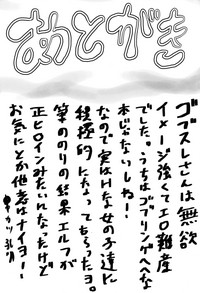 あとがき
ゴブスレさんは無欲
イメージ強くてエロ難産
でした。うちはゴブリンゲへへな
本じゃないしねー!
なので実はHな女の子達に
積極的になってもらったヨ。
筆ののりの結果エルフが
正ヒロインみたいんなったけど
お気にとか他意はナイヨー!